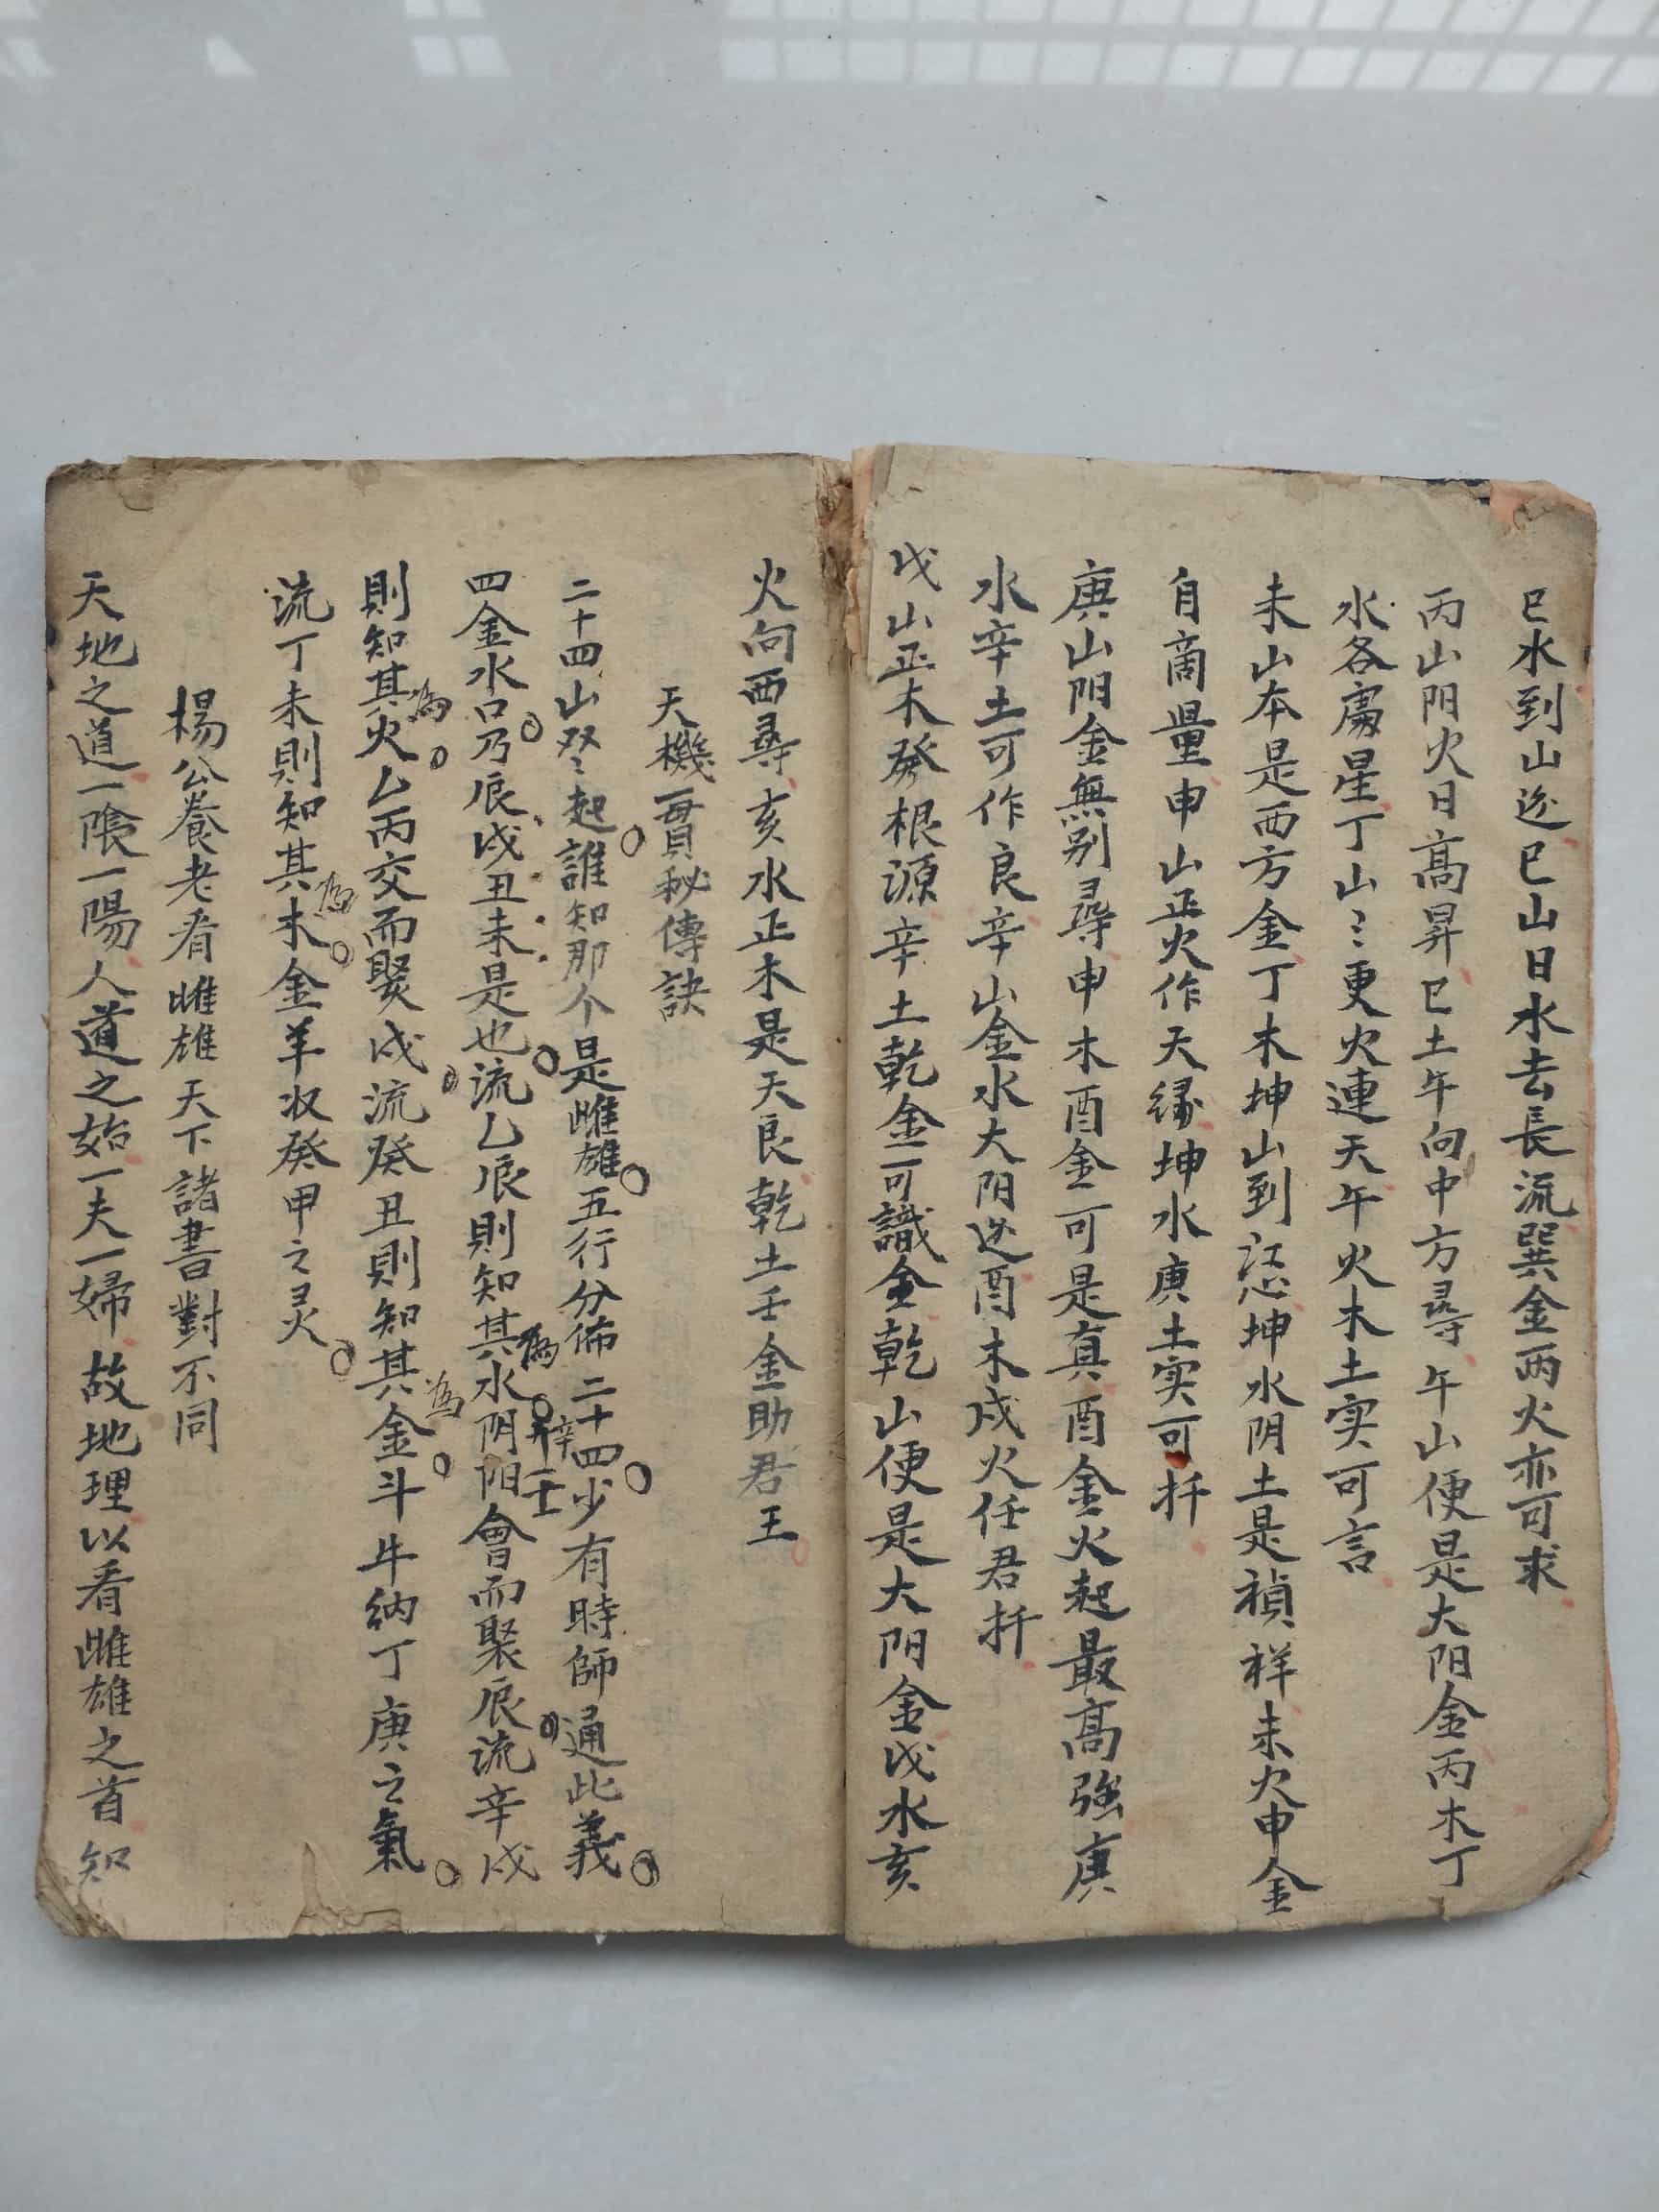 巳水到山迯巳山日水去長流巽金丙火亦可求
丙山阳火日高昇巳土午向中方尋午山便是大阳金丙木丁
水各處星丁山〻更火連天午火木土实可言
未山本是西方金丁木坤山到坤水阴土是禎祥未火申金
自商量申山正火作天缘坤水庚土实可扦
庚山阳金無别尋申木酉金可是真酉金火起最高強庚
水辛土可作良辛山金水大阴迯酉木戌火任君扦
戌山正木發根源辛土乾金可識全乾山便是大阳金戌水亥
火向西尋亥水正木是天良乾土壬金助君王
天機一貫秘傳訣
二十四山双〻起誰知那个是雌雄五行分佈二十四少有時師通此義
四金水口乃辰戌丑未是也流乙辰則知其為水辛壬阴阳會而聚辰流辛戌
則知其為火乙丙交而聚戌流癸丑則知其為金斗牛纳丁庚之氣
流丁未則知其為木金羊收癸甲之灵
楊公養老看雌雄天下諸書對不同
天地之道一陰一陽人道之始一夫一婦故地理以看雌雄之首知